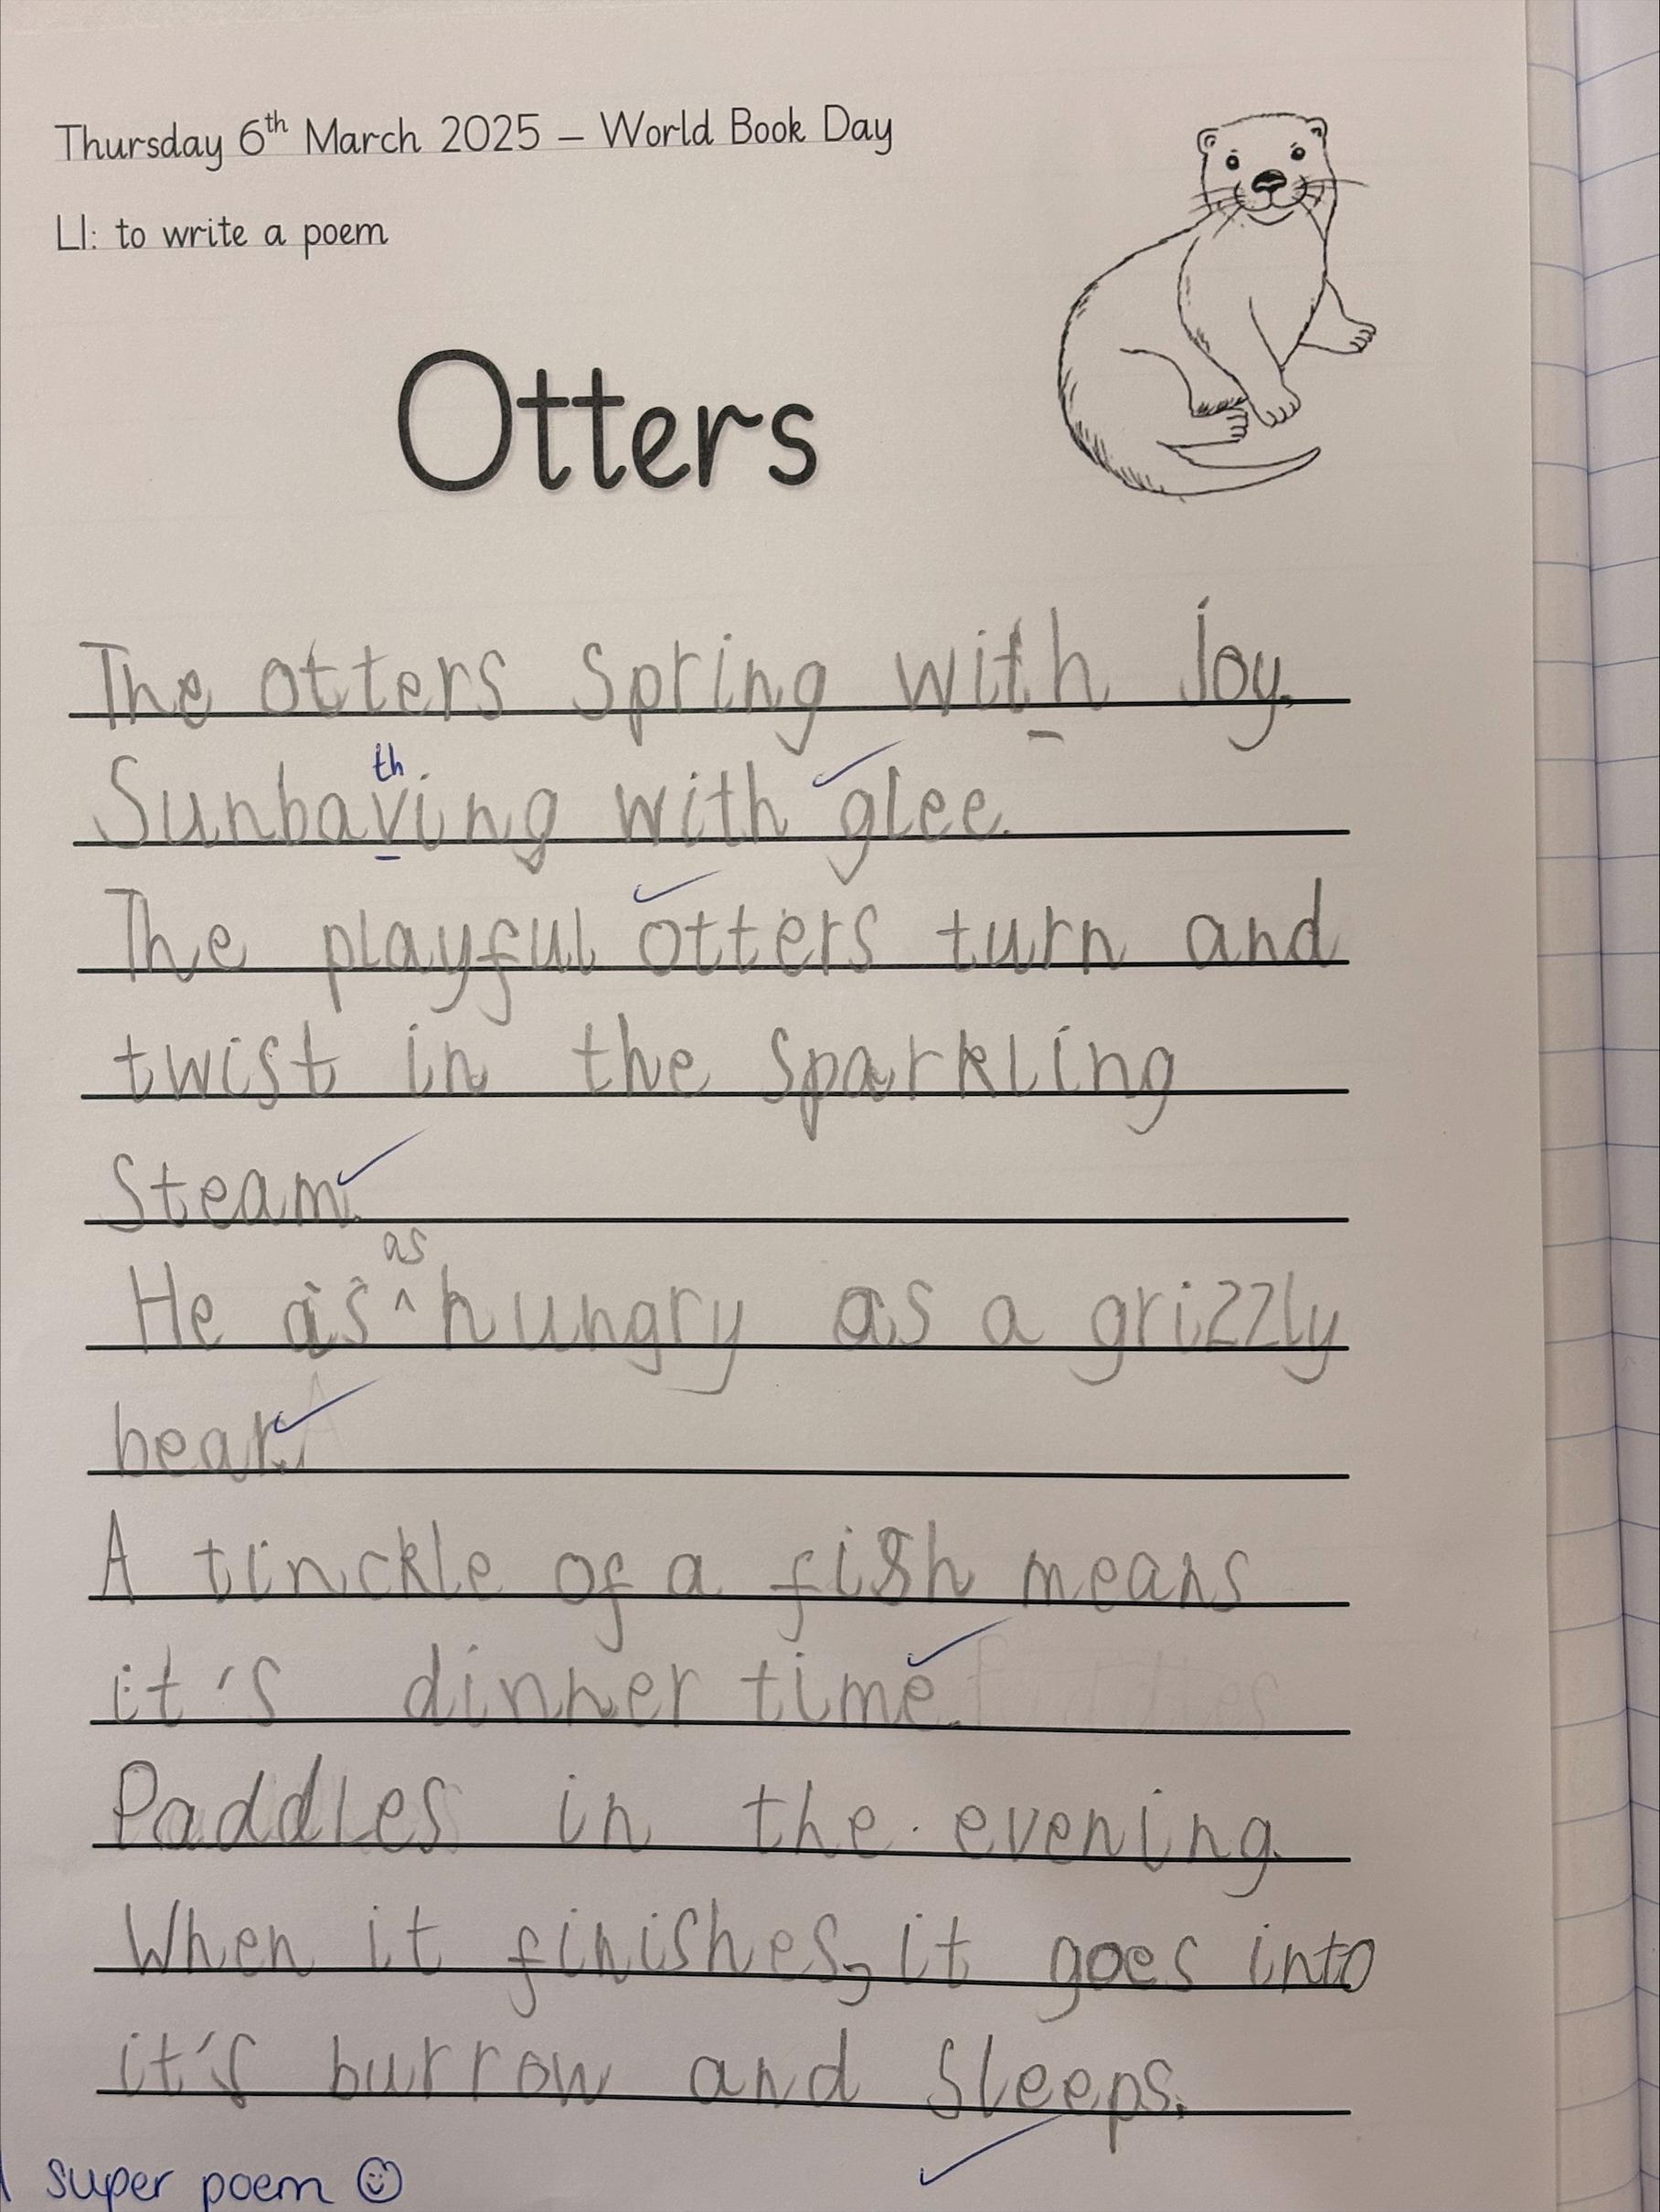 Thursday 6th March 2025 – World Book Day
LI: to write a poem
Otters
The otters Spring with Joy.
th
Sunbaving with glee.
The playful otters turn and
twist in the sparkling
Steam.
as
He as ^ hungry as a grizzly
bear.
A tinckle of a fish means
it's dinner time.
Paddles in the evening.
When it finishes, it goes into
it's burrow and sleeps.
super poem ☺